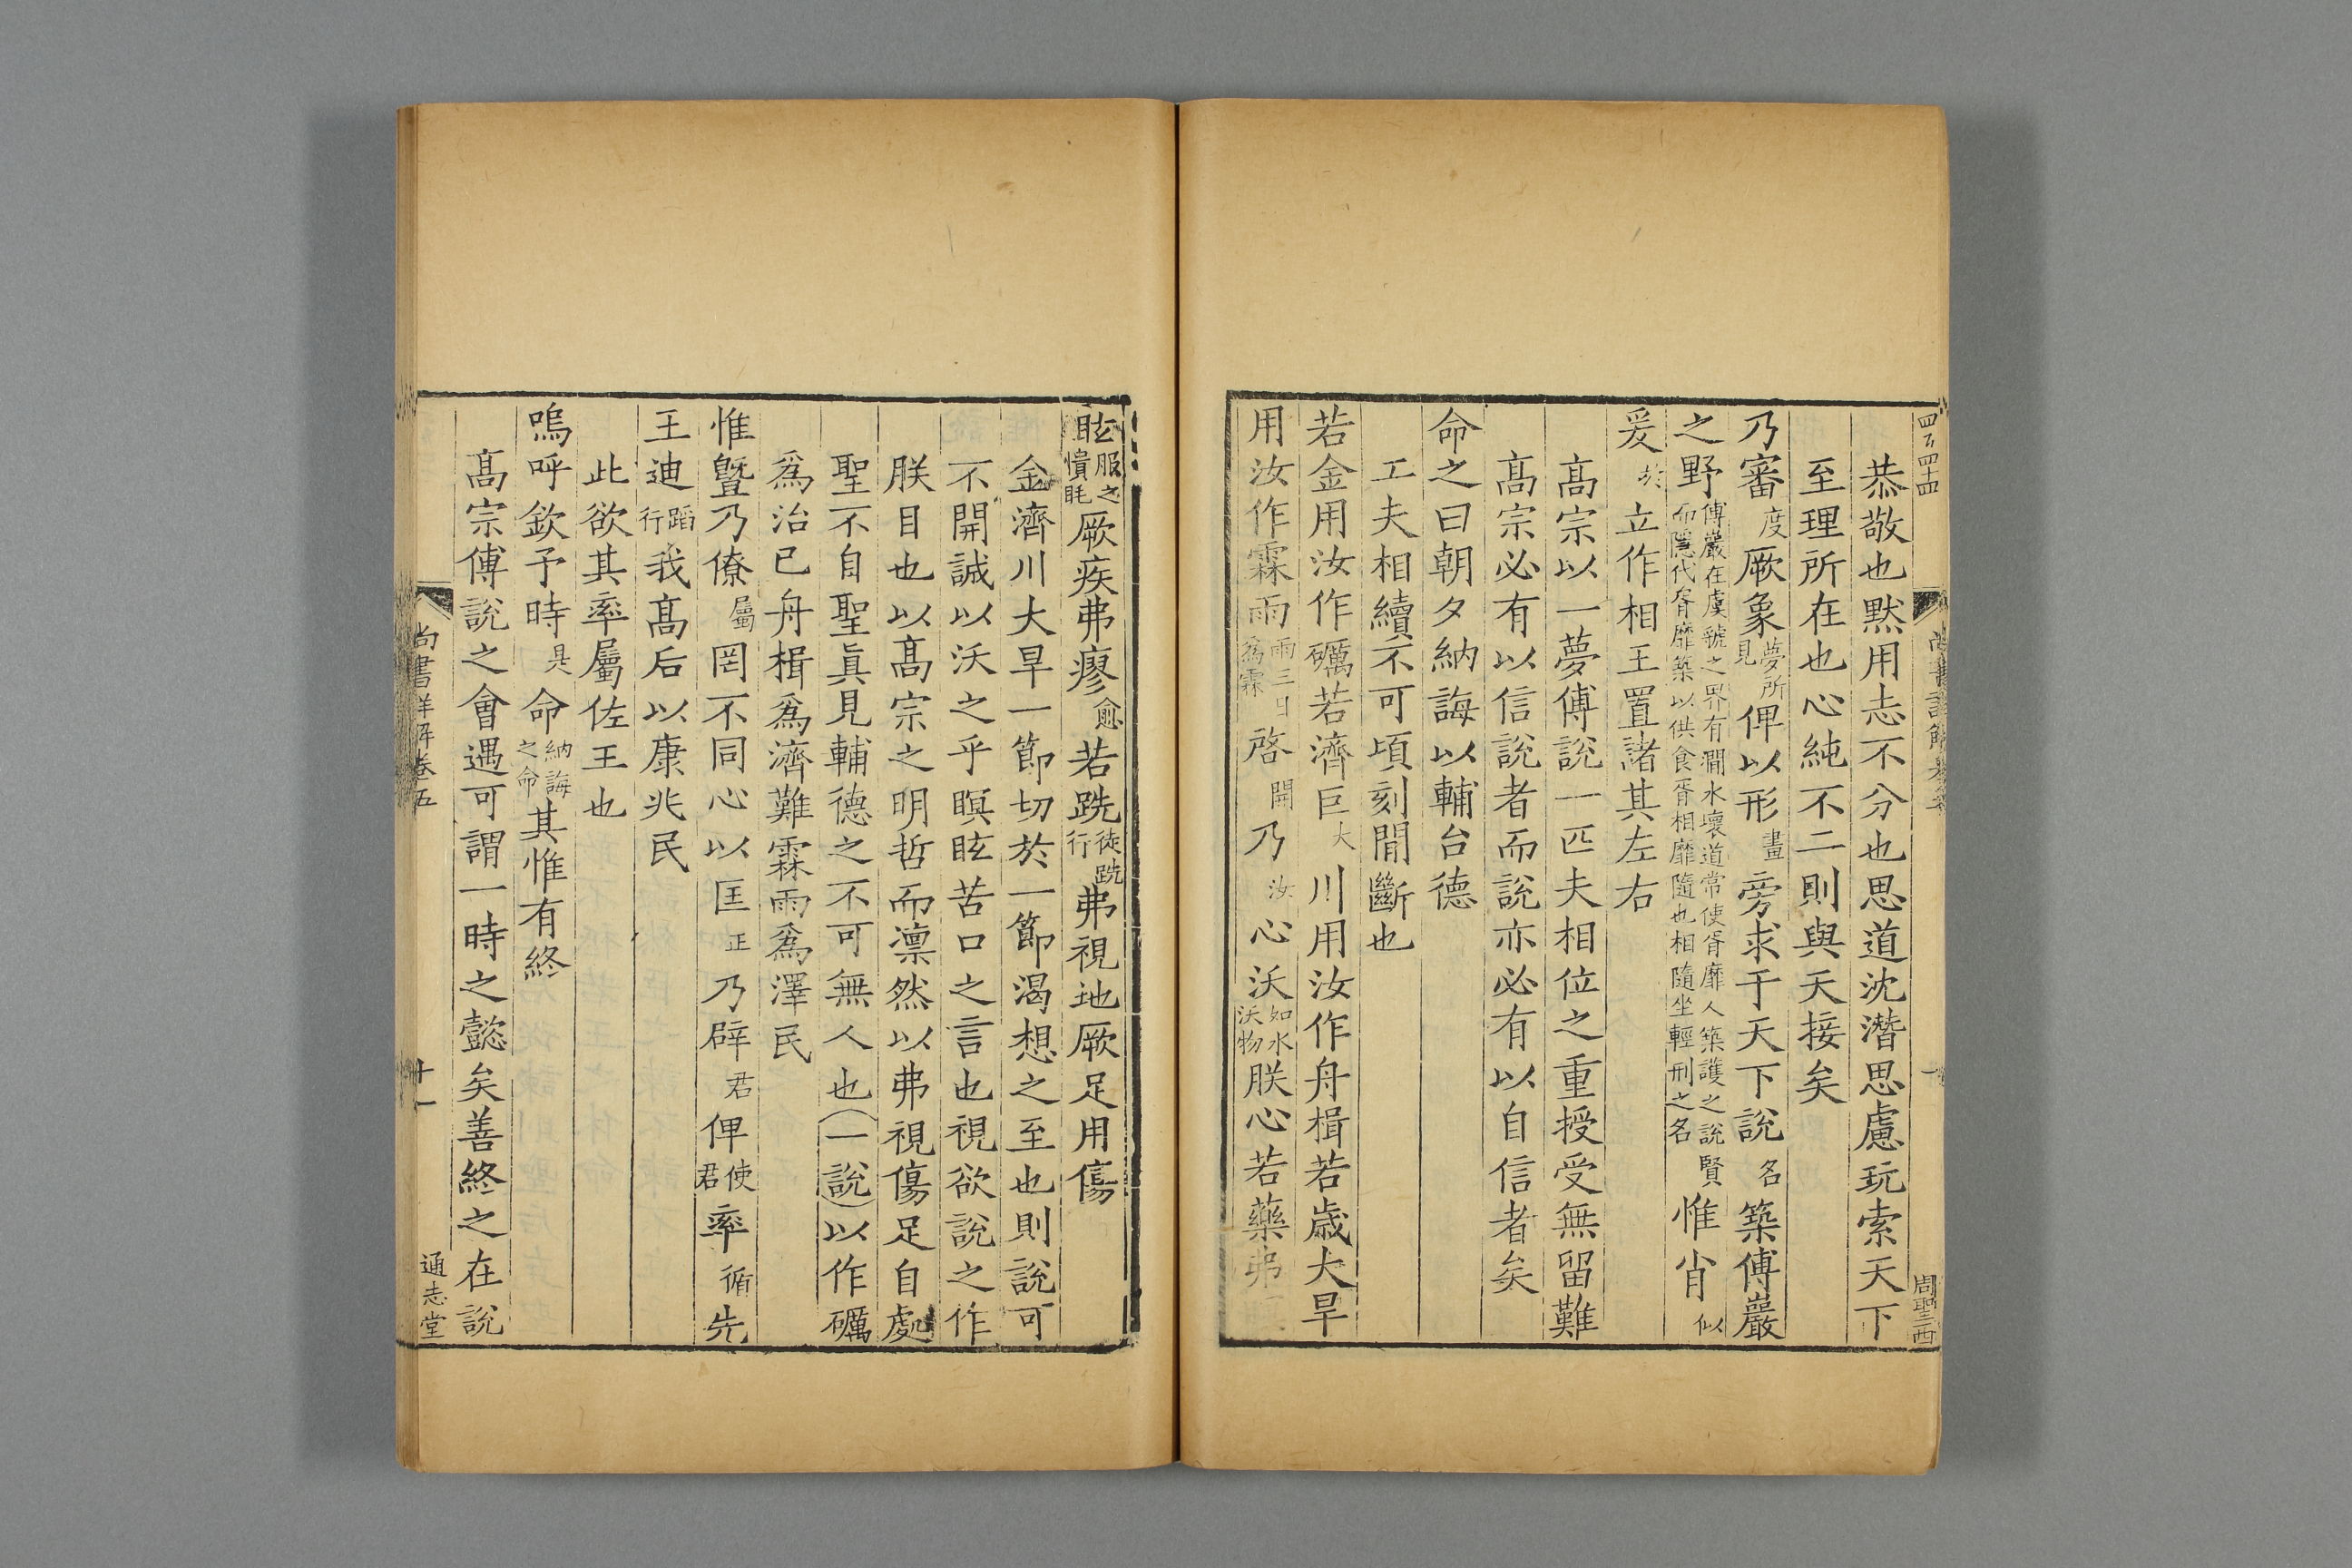 四百四十四
周聖三西
恭敬也黙用志不分也思道沈潛思慮玩索天下
至理所在也心純不二則與天接矣
乃審度厥象夢所見俾以形畫旁求于天下說名築傅巖
之野傅巖在虞虢之界有澗水壞道常使胥靡人築護之說賢而隱代胥靡築以供食胥相靡隨也相隨坐輕刑之名惟肖似
爰於立作相王置諸其左右
髙宗以一夢傅說一匹夫相位之重授受無留難
髙宗必有以信說者而說亦必有以自信者矣
命之曰朝夕納誨以輔台德
工夫相續不可頃刻間斷也
若金用汝作礪若濟巨大川用汝作舟楫若歳大旱
用汝作霖雨雨三日爲霖啓開乃汝心沃如水沃物朕心若藥弗
眩服之憒眊厥疾弗瘳愈若跣徒跣行弗視地厥足用傷
金濟川大旱一節切於一節渴想之至也則說可
不開誠以沃之乎瞑眩苦口之言也視欲說之作
朕目也以髙宗之明哲而凛然以弗視傷足自處
聖不自聖眞見輔德之不可無人也（一說）以作礪
爲治已舟楫爲濟難霖雨爲澤民
惟曁乃僚屬罔不同心以匡正乃辟君俾使君率循先
王迪蹈行我髙后以康兆民
此欲其率屬佐王也
嗚呼欽予時是命納誨之命其惟有終
髙宗傅說之會遇可謂一時之懿矣善終之在說
尚書詳解卷五
十一
通志堂